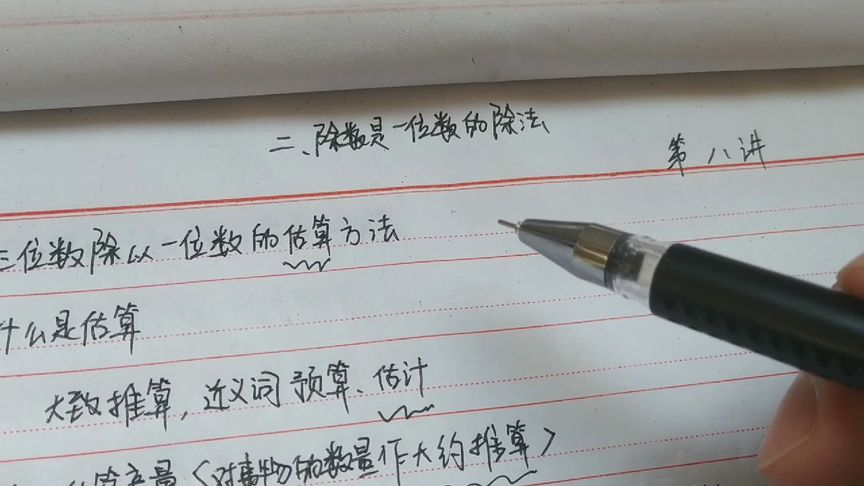 二、除数是一位数的除法
第八讲
三位数除以一位数的估算方法
什么是估算
大致推算,近义词 预算、估计
算产量〈对事物的数量作大约推算〉